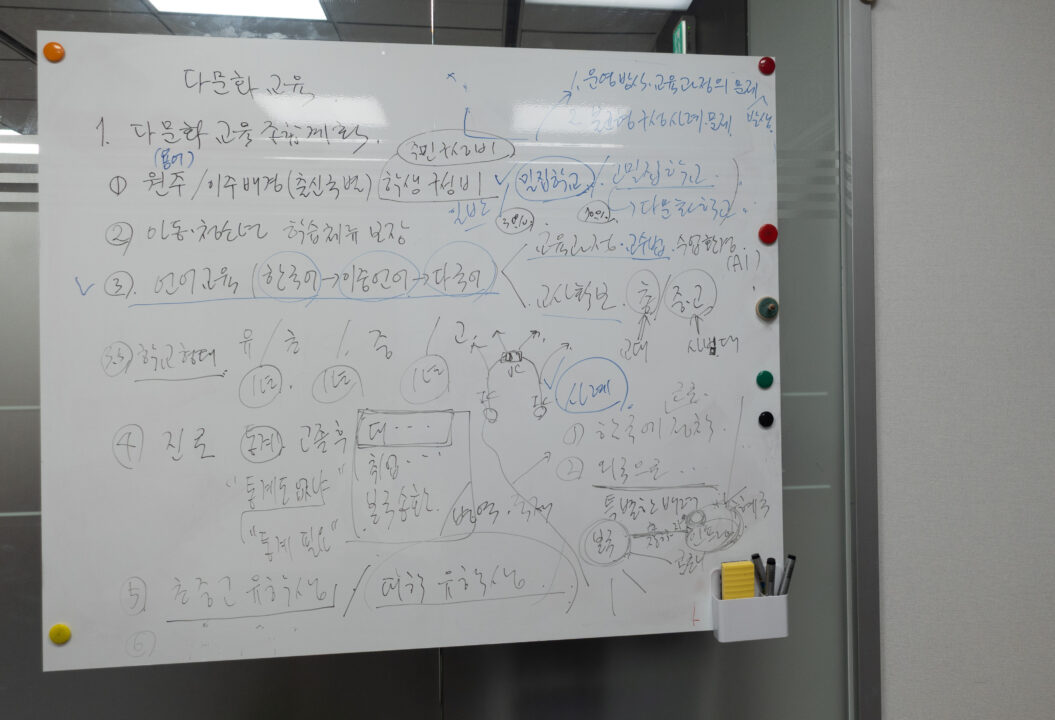 다문화 교육
1. 운영방식. 교육과정의 문제
발생
2. 구성 사례 문제
1. 다문화 교육 종합계획.
(용어)
주민 구성비
① 원주/이주배경(출신국별) 학생 구성비
밀집학교 / 고밀집학교.
일반
→ 다문화학교.
② 아동·청소년 학습체류 보장
교육과정·교수법. 수업환경.
(AI)
③. 언어교육 (한국어→이중언어→다국어
교사확보. 초/중.고
교대
사범대
학교형태 유/초/. 중 / 고
1년. 1년 1년
사례
④ 진로 통계 고졸후 대····
① 한국에 정착.
취업····
"통계도 없냐"
② 외국으로 ···
본국송환.
번역.
"통계 필요"
특별한 배려
본국
⑤ 초중고 유학생 / 대학 유학생
⑥